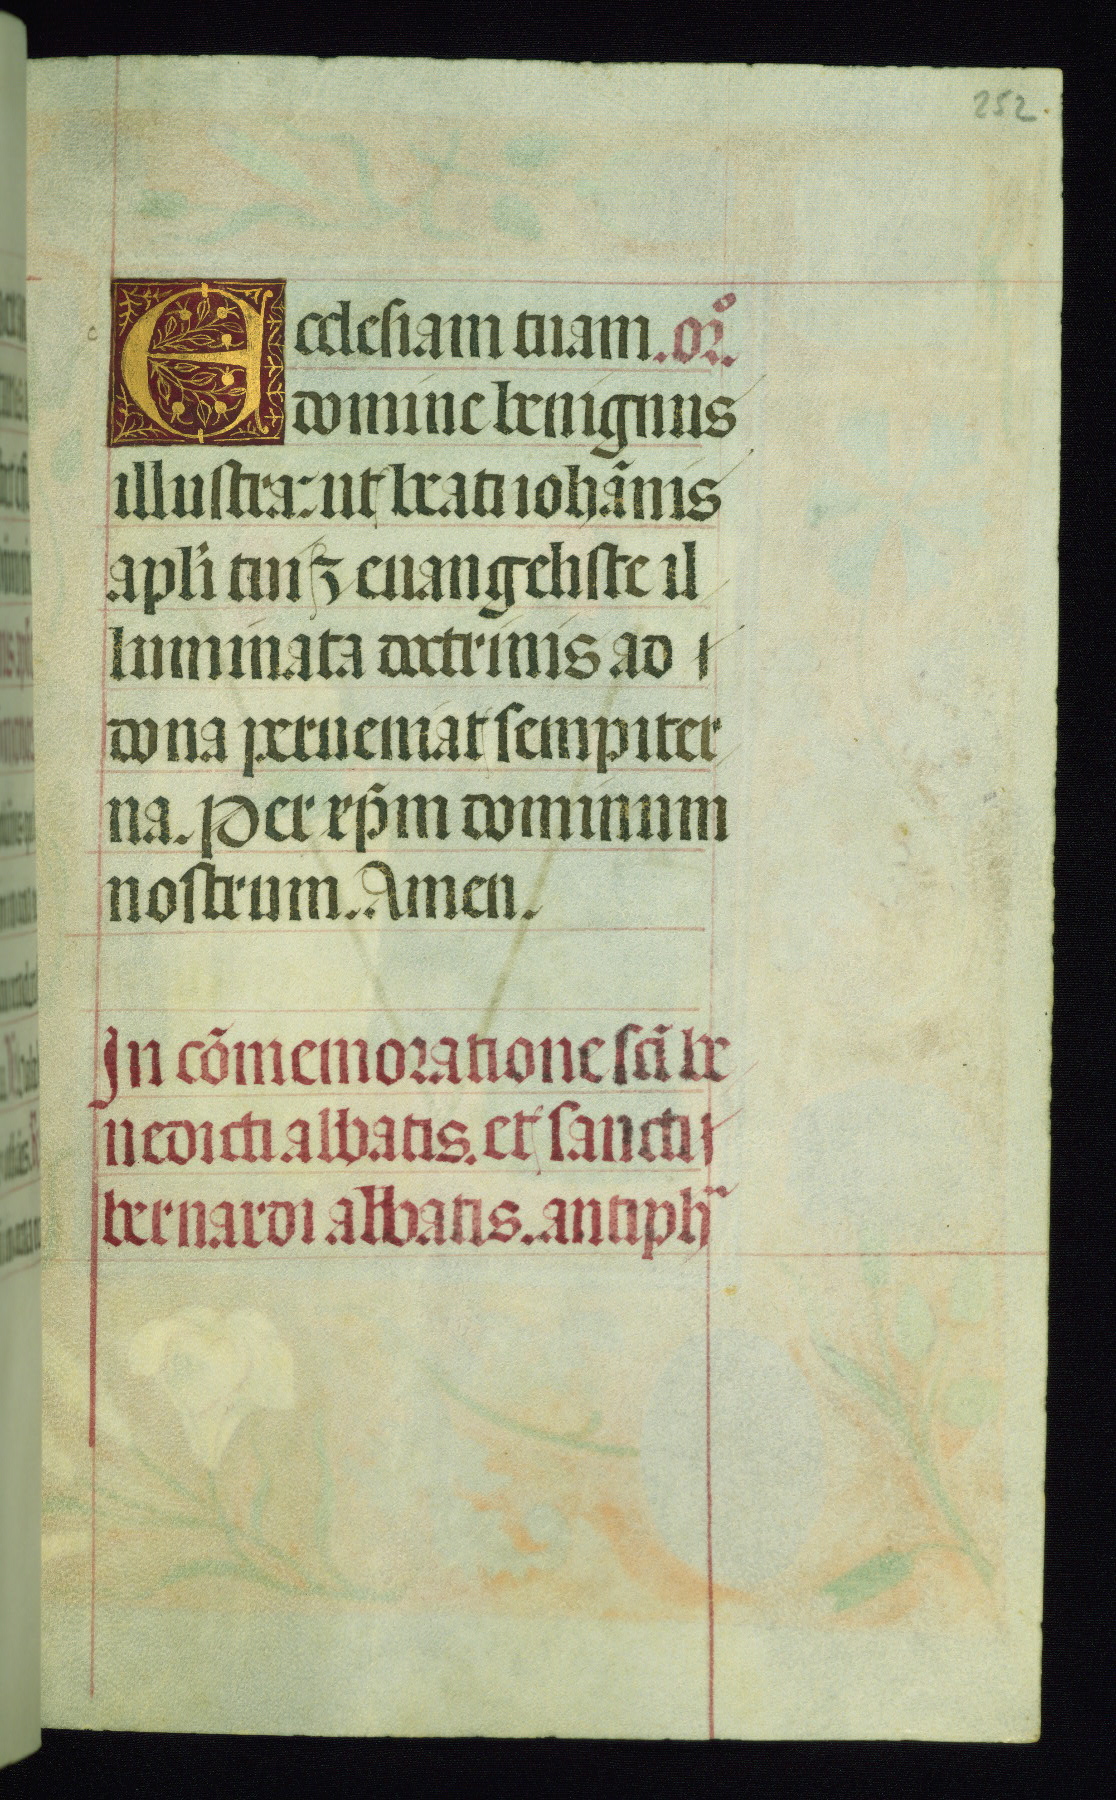 252.
c
Ecclesiam tuam. or̊.
domine benignus
illustra: ut beati iohãnis
apl̃i tui ꝫ euangeliste il
luminata doctrinis ad
dona perueniat sempiter
na. Per xp̃m dominum
nostrum. Amen.
In cõmemoratione sc̃i be
nedicti abbatis. et sancti
bernardi abbatis. antiph̃